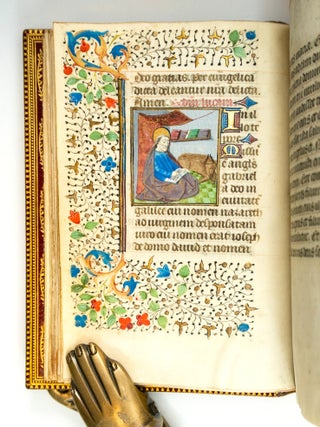 Deo gratias. Per euangelica
dicta deleantur nr̄a delicta
Amen. lucam
In il
lo tē
pre
Missu
ē angls
gabriel
a deo in
ciuitatē
galilee cui nomen nasareth
ad uirginem desponsatam
uiro cui nomen erat ioseph
de domo dauid et nomen